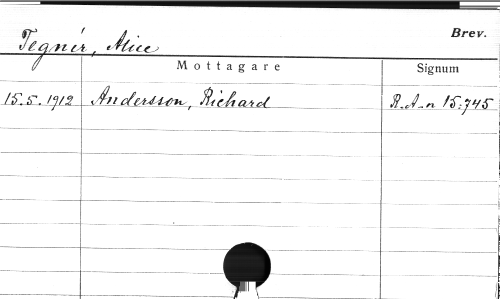 Brev.
Tegnér, Alice
Mottagare Signum
15.5.1912 Andersson, Richard R.A-n 15:745